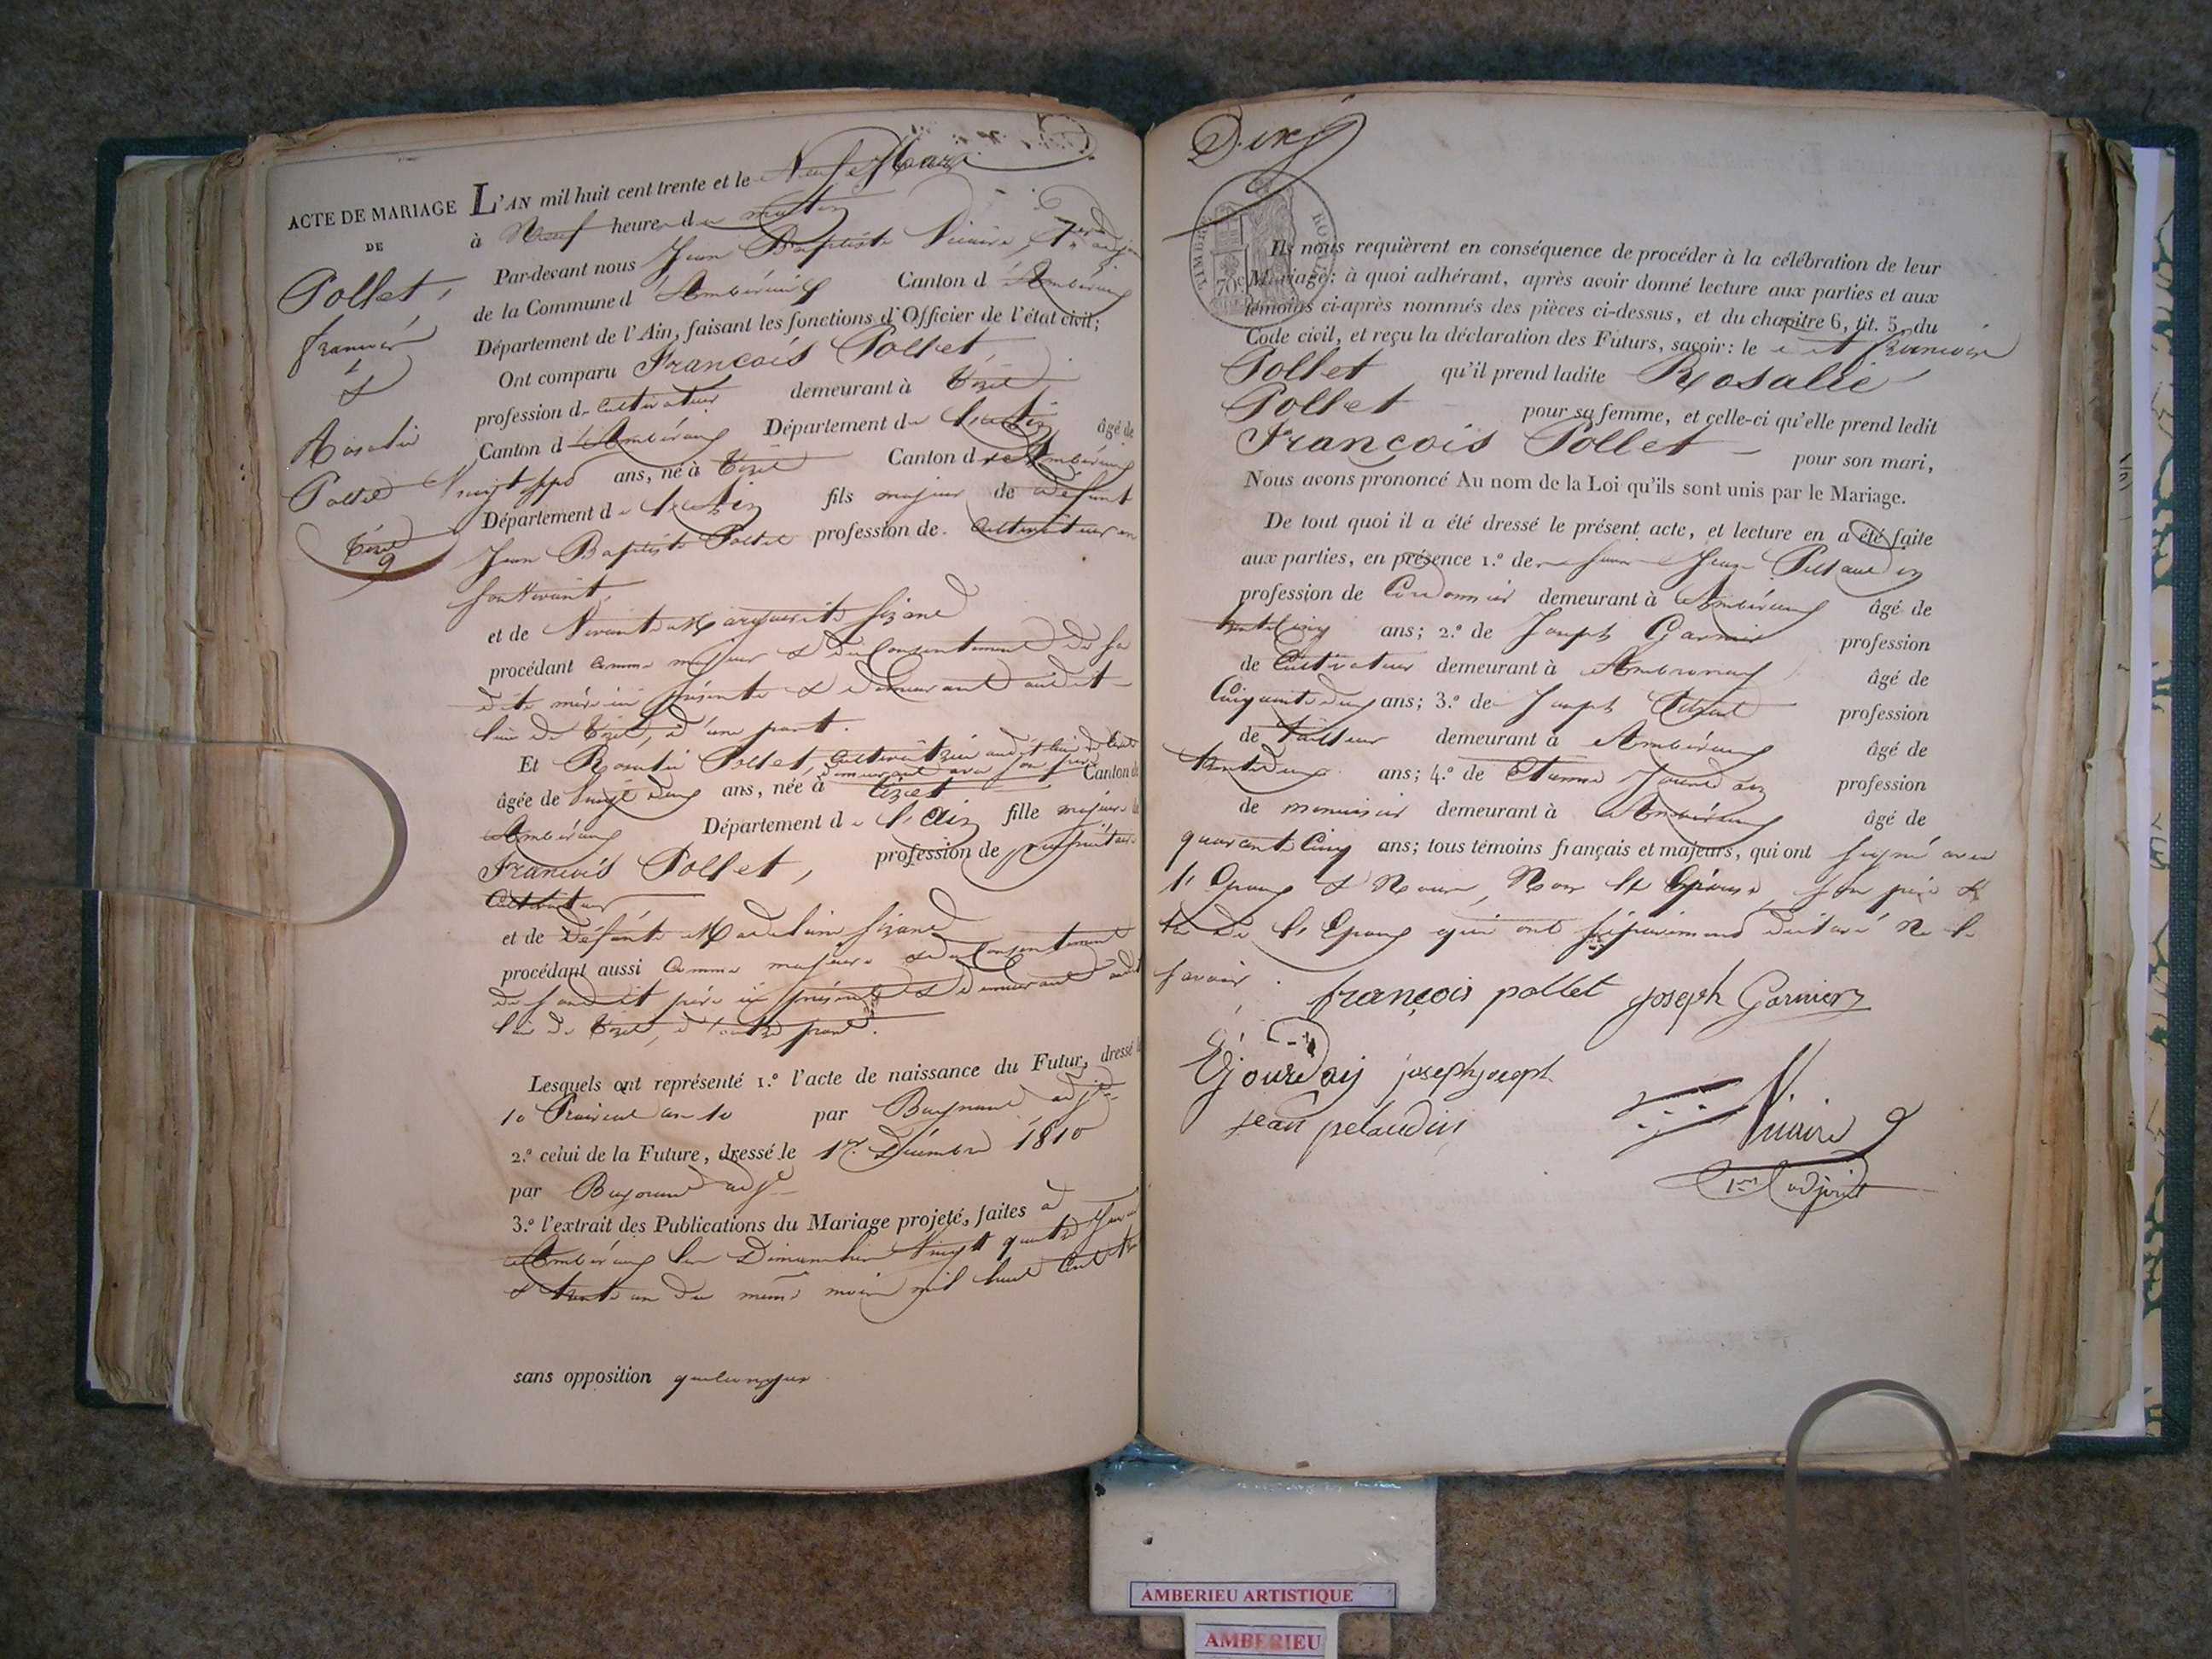 ACTE DE MARIAGE
DE
Pollet,
françois
&
Rosalie
Pollet
Tiret
9
L'AN mil huit cent trente et le Neuf Mars
à Neuf heures du matin
Par-devant nous Jean Baptiste Vicaire, 1er adjoint
de la Commune d'Ambérieux Canton d'Ambérieux
Département de l'Ain, faisant les fonctions d'Officier de l'état civil;
Ont comparu François Pollet,
profession de Cultivateur demeurant à Tiret
Canton d'Ambérieux Département de l'ain âgé de
Vingt sept ans, né à Tiret Canton d'Ambérieux
Département de l'Ain fils majeur de défunt
Jean Baptiste Pollet profession de Cultivateur en
son vivant,
et de Vivante Marguerite
procédant comme majeur & du Consentement de sa
dite mère ici présente & demeurant audit
lieu de Tiret, d'une part.
Et Rosalie Pollet, Cultivatrice audit lieu de Tiret
demeurant avec son père
âgée de vingt deux ans, née à Tiret Canton de
Ambérieux Département de l'Ain fille majeure de
François Pollet, profession de propriétaire
Cultivateur
et de Défunte Madelaine
procédant aussi Comme majeure & du Consentement
de son dit père ici présent & demeurant audit
lieu de Tiret, d'autre part.
Lesquels ont représenté 1.º l'acte de naissance du Futur, dressé le
10 Prairial an 10 par adjt
2.º celui de la Future, dressé le 1er Décembre 1810
par adjt
3.º l'extrait des Publications du Mariage projeté, faites à
Ambérieux les Dimanches Vingt quatre
& trente un du même mois mil huit Cent
sans opposition quelconque
Dix
TIMBRE ROYAL
70c
Ils nous requièrent en conséquence de procéder à la célébration de leur
Mariage: à quoi adhérant, après avoir donné lecture aux parties et aux
témoins ci-après nommés des pièces ci-dessus, et du chapitre 6, tit. 5, du
Code civil, et reçu la déclaration des Futurs, savoir: le dit françois
Pollet qu'il prend ladite Rosalie
Pollet pour sa femme, et celle-ci qu'elle prend ledit
François Pollet pour son mari,
Nous avons prononcé Au nom de la Loi qu'ils sont unis par le Mariage.
De tout quoi il a été dressé le présent acte, et lecture en a été faite
aux parties, en présence 1.º de Jean Pelaudin
profession de Cordonnier demeurant à Ambérieux âgé de
trente cinq ans; 2.º de Joseph Garnier profession
de Cultivateur demeurant à Ambronay âgé de
Cinquante deux ans; 3.º de Joseph profession
de tailleur demeurant à Ambérieux âgé de
trente deux ans; 4.º de Etienne Jourdan profession
de menuisier demeurant à Ambérieux âgé de
quarante Cinq ans; tous témoins français et majeurs, qui ont signé avec
l'Epoux & Nous, Non l'Epouse, son père &
de l'Epoux qui ont séparément déclaré Ne le
savoir.
françois pollet joseph Garnier
Ejourdan joseph joseph
jean pelaudin
Vicaire
1er adjoint
AMBERIEU ARTISTIQUE
AMBERIEU